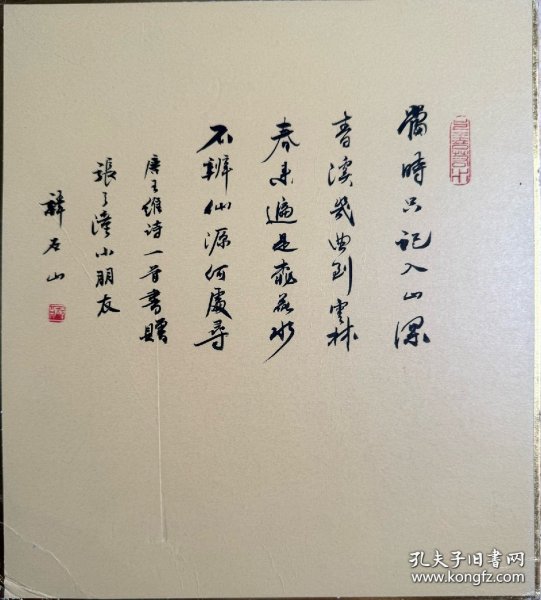 當時只記入山深
青溪幾曲到雲林
春来遍是桃花水
不辨仙源何處尋
唐王維诗一首書贈
張子澅小朋友
薛石山
孔夫子旧书网
www.kongfz.com